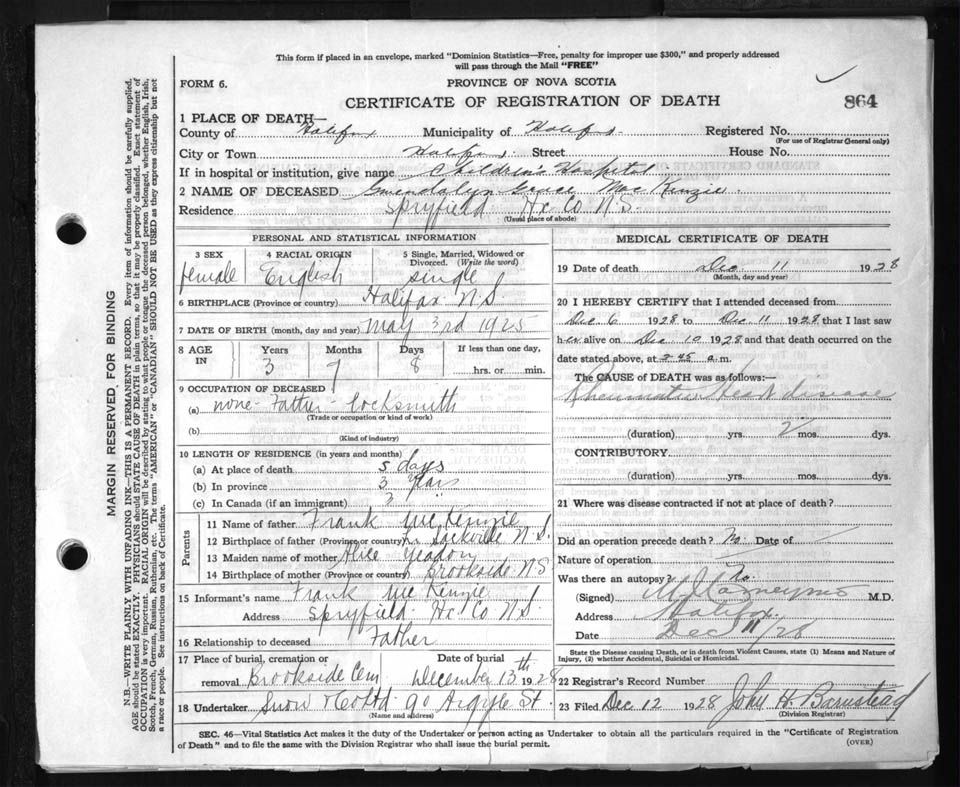 This form if placed in an envelope, marked "Dominion Statistics—Free, penalty for improper use $300," and properly addressed
will pass through the Mail "FREE"
FORM 6.
PROVINCE OF NOVA SCOTIA
CERTIFICATE OF REGISTRATION OF DEATH
864
1 PLACE OF DEATH—
County of Halifax Municipality of Halifax Registered No.
(For use of Registrar General only)
City or Town Halifax Street House No.
If in hospital or institution, give name Children's Hospital
2 NAME OF DECEASED Gwendolyn Grace Mac Kenzie
Residence Spryfield Hx Co N.S.
(Usual place of abode)
PERSONAL AND STATISTICAL INFORMATION
3 SEX female
4 RACIAL ORIGIN English
5 Single, Married, Widowed or Divorced. (Write the word) single
6 BIRTHPLACE (Province or country) Halifax N.S.
7 DATE OF BIRTH (month, day and year) May 3rd 1925
8 AGE IN Years 3 Months 7 Days 8 If less than one day, hrs. or min.
9 OCCUPATION OF DECEASED
(a) none - Father - Locksmith
(Trade or occupation or kind of work)
(b)
(Kind of industry)
10 LENGTH OF RESIDENCE (in years and months)
(a) At place of death 5 days
(b) In province 3 years
(c) In Canada (if an immigrant) 3 "
Parents
11 Name of father Frank McKenzie
12 Birthplace of father (Province or country) Sackville N.S.
13 Maiden name of mother Alice Yeadon
14 Birthplace of mother (Province or country) Brookside N.S
15 Informant's name Frank McKenzie
Address Spryfield Hx Co N.S.
16 Relationship to deceased Father
17 Place of burial, cremation or removal Brookside Cem Date of burial December 13th 1928
18 Undertaker Snow & Co Ltd 90 Argyle St.
(Name and address)
MEDICAL CERTIFICATE OF DEATH
19 Date of death Dec 11 1928
(Month, day and year)
20 I HEREBY CERTIFY that I attended deceased from
Dec 6 1928 to Dec 11 1928 that I last saw
her alive on Dec 10 1928 and that death occurred on the
date stated above, at 2 45 a.m.
The CAUSE of DEATH was as follows:—
Rheumatic Heart disease
(duration) yrs. 2 mos. dys.
CONTRIBUTORY
(duration) yrs. mos. dys.
21 Where was disease contracted if not at place of death?
Did an operation precede death? No. Date of
Nature of operation
Was there an autopsy? No
(Signed) M.D.
Address Halifax
Date Dec 11/28
State the Disease causing Death, or in death from Violent Causes, state (1) Means and Nature of
Injury, (2) whether Accidental, Suicidal or Homicidal.
22 Registrar's Record Number
23 Filed Dec 12 1928 John H. Barnstead
(Division Registrar)
SEC. 46—Vital Statistics Act makes it the duty of the Undertaker or person acting as Undertaker to obtain all the particulars required in the "Certificate of Registration
of Death" and to file the same with the Division Registrar who shall issue the burial permit.
(OVER)
MARGIN RESERVED FOR BINDING
N.B.—WRITE PLAINLY WITH UNFADING INK—THIS IS A PERMANENT RECORD. Every item of information should be carefully supplied.
AGE should be stated EXACTLY. PHYSICIANS should STATE CAUSE OF DEATH in plain terms, so that it may be properly classified. Exact statement of
OCCUPATION is very important. RACIAL ORIGIN will be described by stating to what people or tongue the deceased person belonged, whether English, Irish,
Scotch, French, German, Russian, Ruthenian, etc. The terms "AMERICAN" or "CANADIAN" SHOULD NOT BE USED as they express citizenship but not
a race or people. See instructions on back of Certificate.